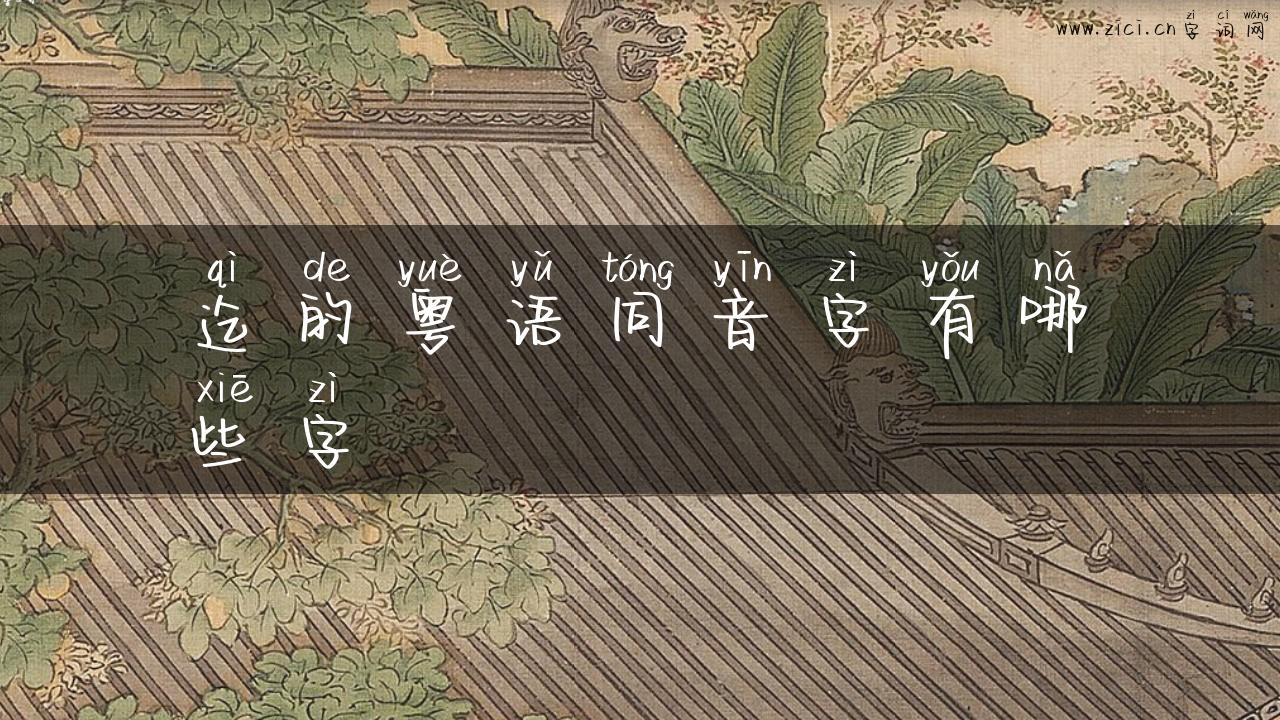 zì cí wǎng
www.zici.cn 字 词 网
qì de yuè yǔ tóng yīn zì yǒu nǎ
迄 的 粤 语 同 音 字 有 哪
xiē zì
些 字